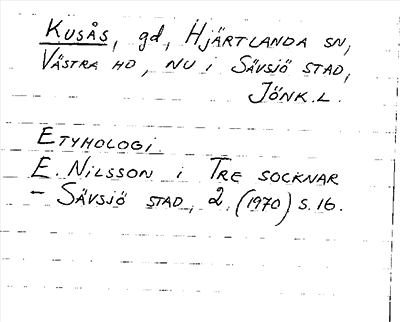 Kusås, gd, Hjärtlanda sn,
Västra hd, nu i Sävsjö stad,
Jönk.l.
Etymologi.
E. Nilsson i Tre socknar
- Sävsjö stad, 2 (1970) s. 16.